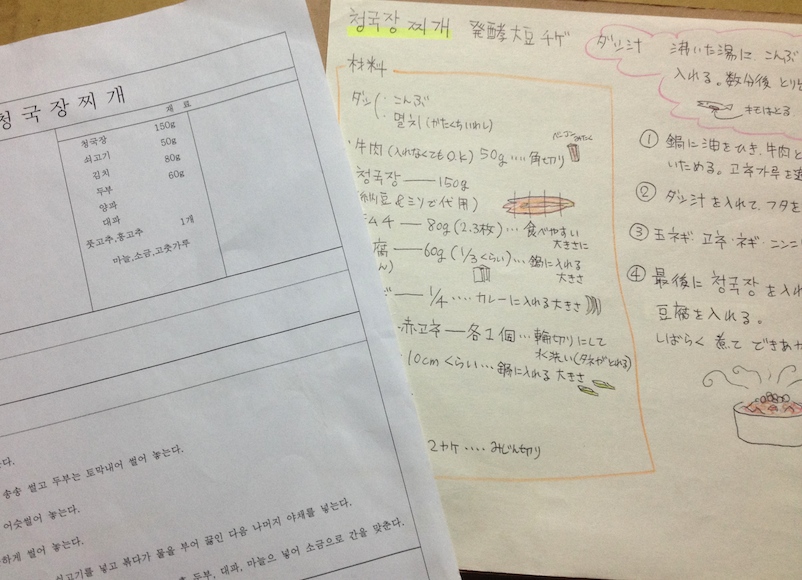 청국장찌개
재 료
청국장 150g
쇠고기 50g
김치 80g
두부 60g
양파
대파
풋고추,홍고추 1개
마늘,소금,고춧가루
다.
송송 썰고 두부는 토막내어 썰어 놓는다.
어숫썰어 놓는다.
하게 썰어 놓는다.
쇠고기를 넣고 볶다가 물을 부어 끓인 다음 나머지 야채를 넣는다.
두부, 대파, 마늘으 넣어 소금으로 간을 맞춘다.
청국장 찌개 発酵大豆チゲ
材料
ダシ ・こんぶ
・멸치 (かたくちいわし)
・牛肉 (入れなくてもO.K) 50g ‥‥ 角切り
청국장 ― 150g
納豆&ミソで代用)
ムチ ― 80g (2,3枚) ‥‥ 食べやすい大きさに
腐 ― 60g (1/3くらい) ‥‥ 鍋に入れる大きさ
ん)
1/4 ‥‥ カレーに入れる大きさ
赤고추 ― 各1個 ‥‥ 輪切りにして
水洗い(タネがとれる)
10cmくらい ‥‥ 鍋に入れる大きさ
2カケ ‥‥ みじん切り
ダシ汁 沸いた湯に、こんぶ
入れる。数分後とり
キモはとる
① 鍋に油をひき、牛肉と
いためる。고추가루を
② ダシ汁を入れて、フタを
③ 玉ネギ・고추・ネギ・ニンニ
④ 最後に청국장を入れ
豆腐を入れる。
しばらく煮てできあが